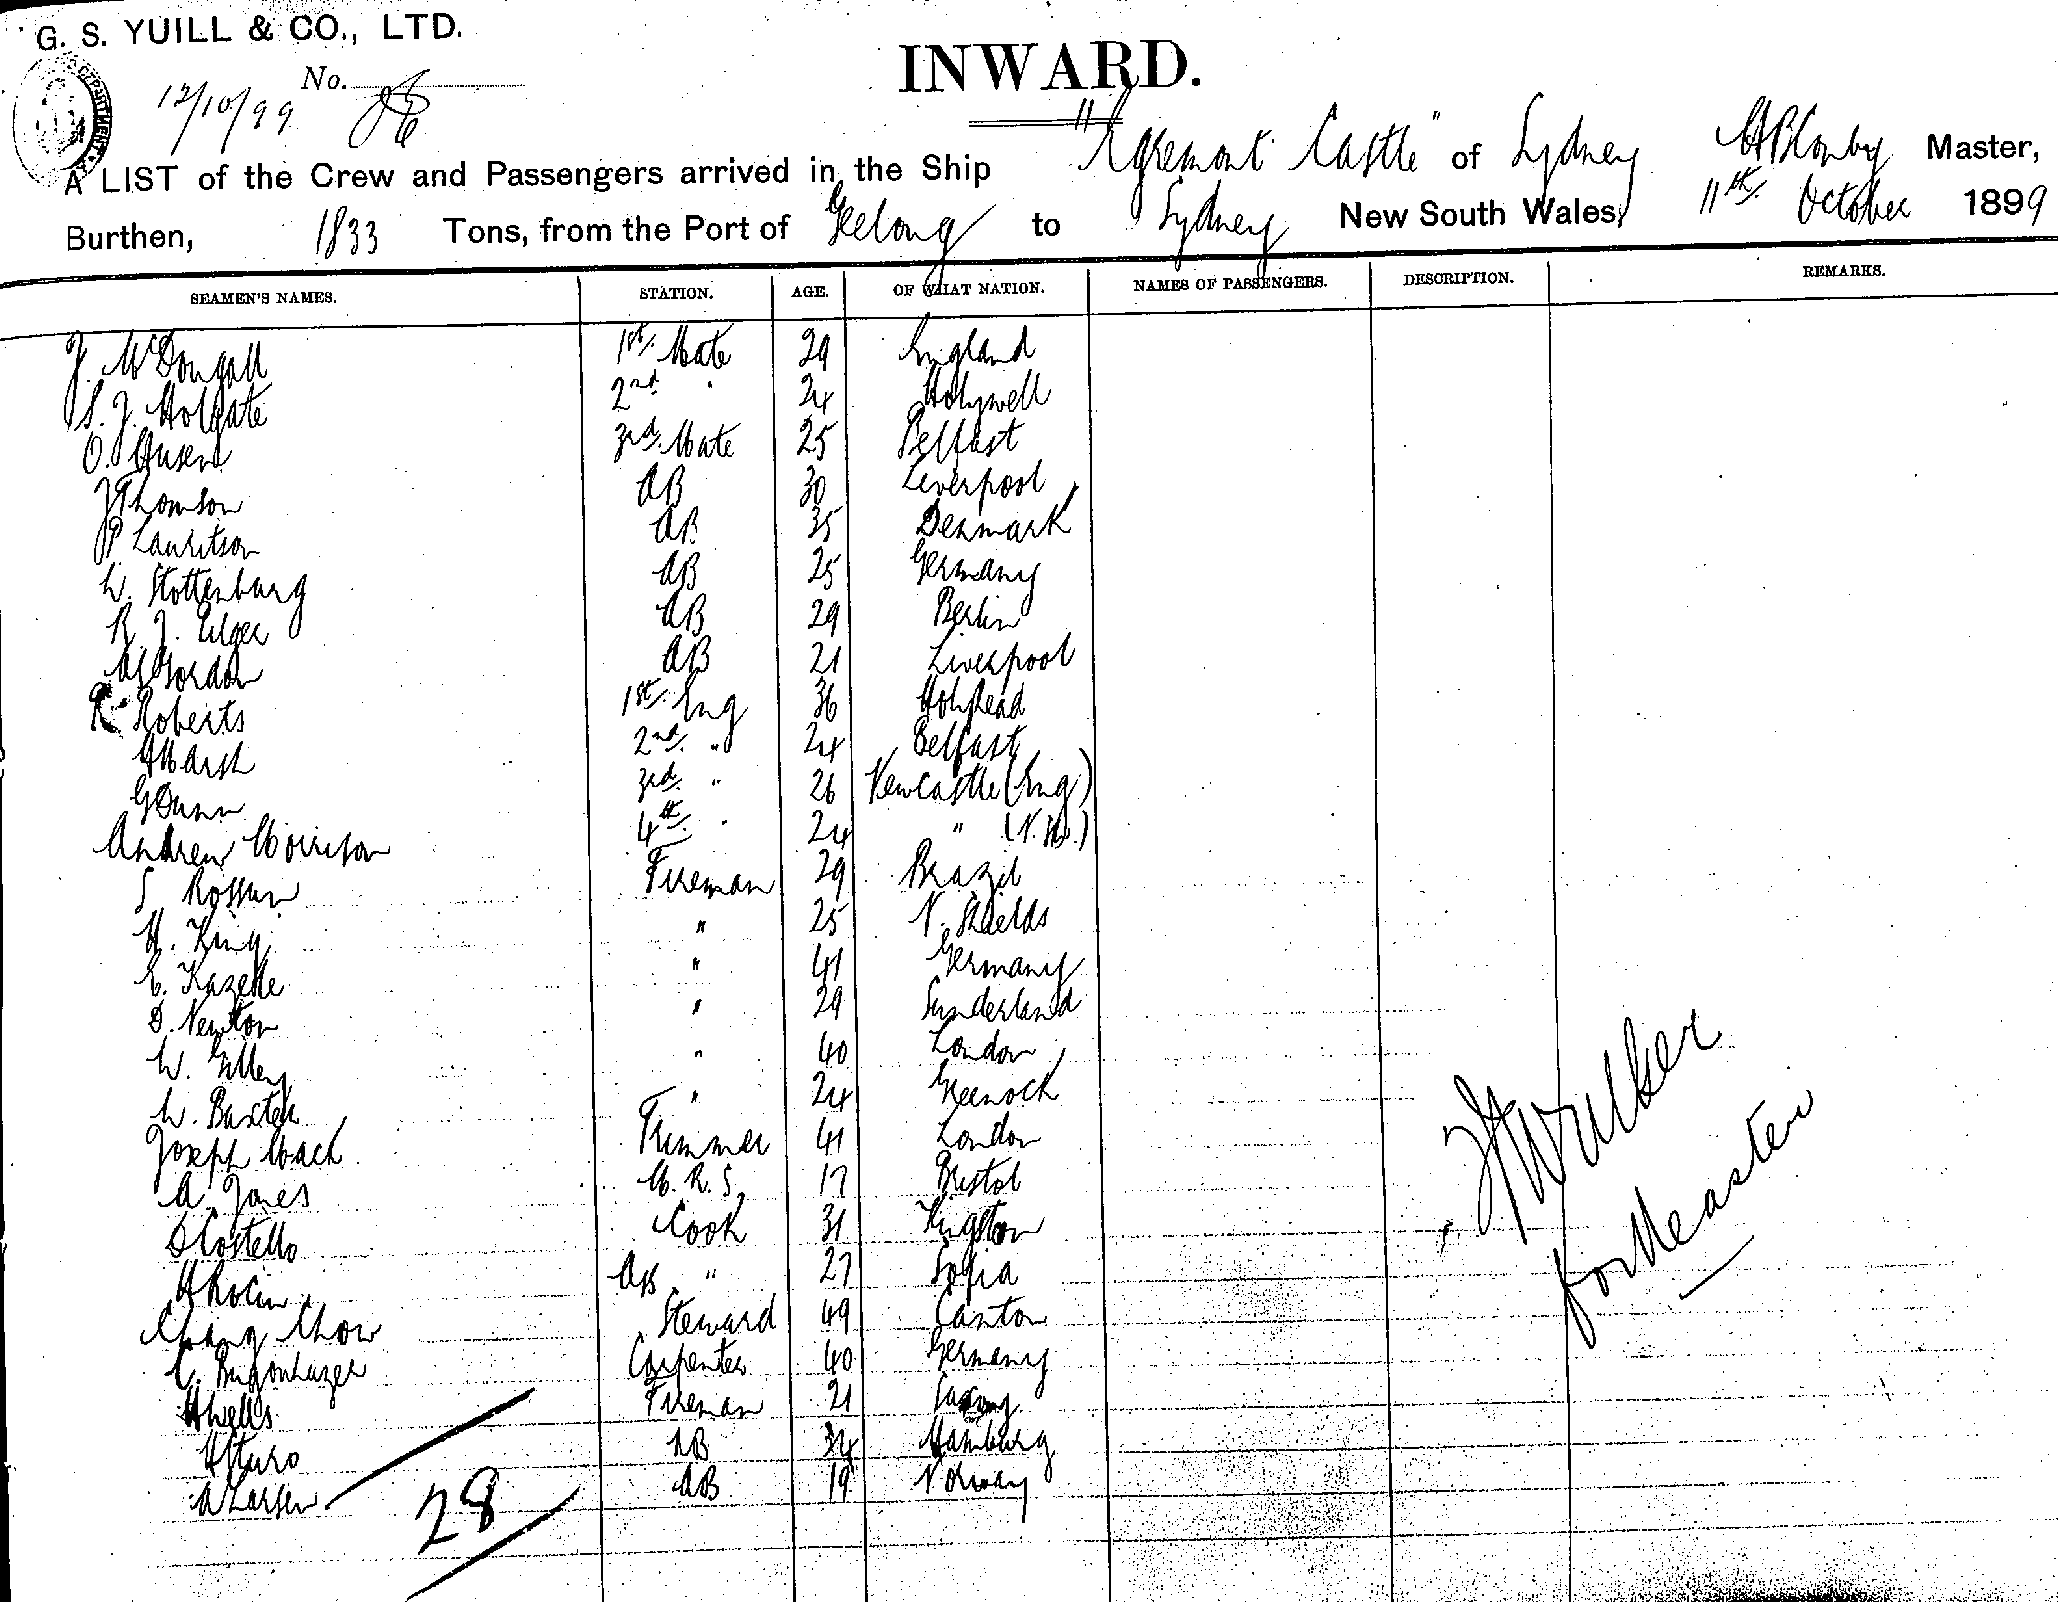 G. S. YUILL & CO., LTD.
INWARD.
No.
12/10/99
A LIST of the Crew and Passengers arrived in the Ship "Egremont Castle" of Sydney Master,
Burthen, 1833 Tons, from the Port of Geelong to Sydney New South Wales, 11th October 1899
SEAMEN'S NAMES. STATION. AGE. OF WHAT NATION. NAMES OF PASSENGERS. DESCRIPTION. REMARKS.
J. McDougall 1st Mate 29 England
S. J. Holgate 2nd " 24 Holywell
O. 3rd Mate 25 Belfast
J Thomson AB 30 Liverpool
P Lauritson AB 35 Denmark
W. Stottenburg AB 25 Germany
R. J. Elger AB 29 Berlin
A Gordon AB 21 Liverpool
R Roberts 1st Eng 36 Holyhead
H Marsh 2nd " 24 Belfast
G Dunn 3rd " 26 Newcastle (Eng)
Andrew Morrison 4th " 24 " (N.S.W.)
S Rossun Fireman 29 Brazil
H. King " 25 N. Shields
E. Kazette " 41 Germany
D. Newton " 29 Sunderland
W. Gilley " 40 London
W. Baxter " 24 Greenock
Joseph Mack Trimmer 41 London
A. Jones M.R.S. 17 Bristol
D Costello Cook 31 Kingston
H Rolin AB " 27 Sofia
Chang Chow Steward 49 Canton
C. Carpenter 40 Germany
H Wells Fireman 21
H Sturo AB 34 Hamburg
A Larsen AB 19 Norway
28
H Walker
for Measten